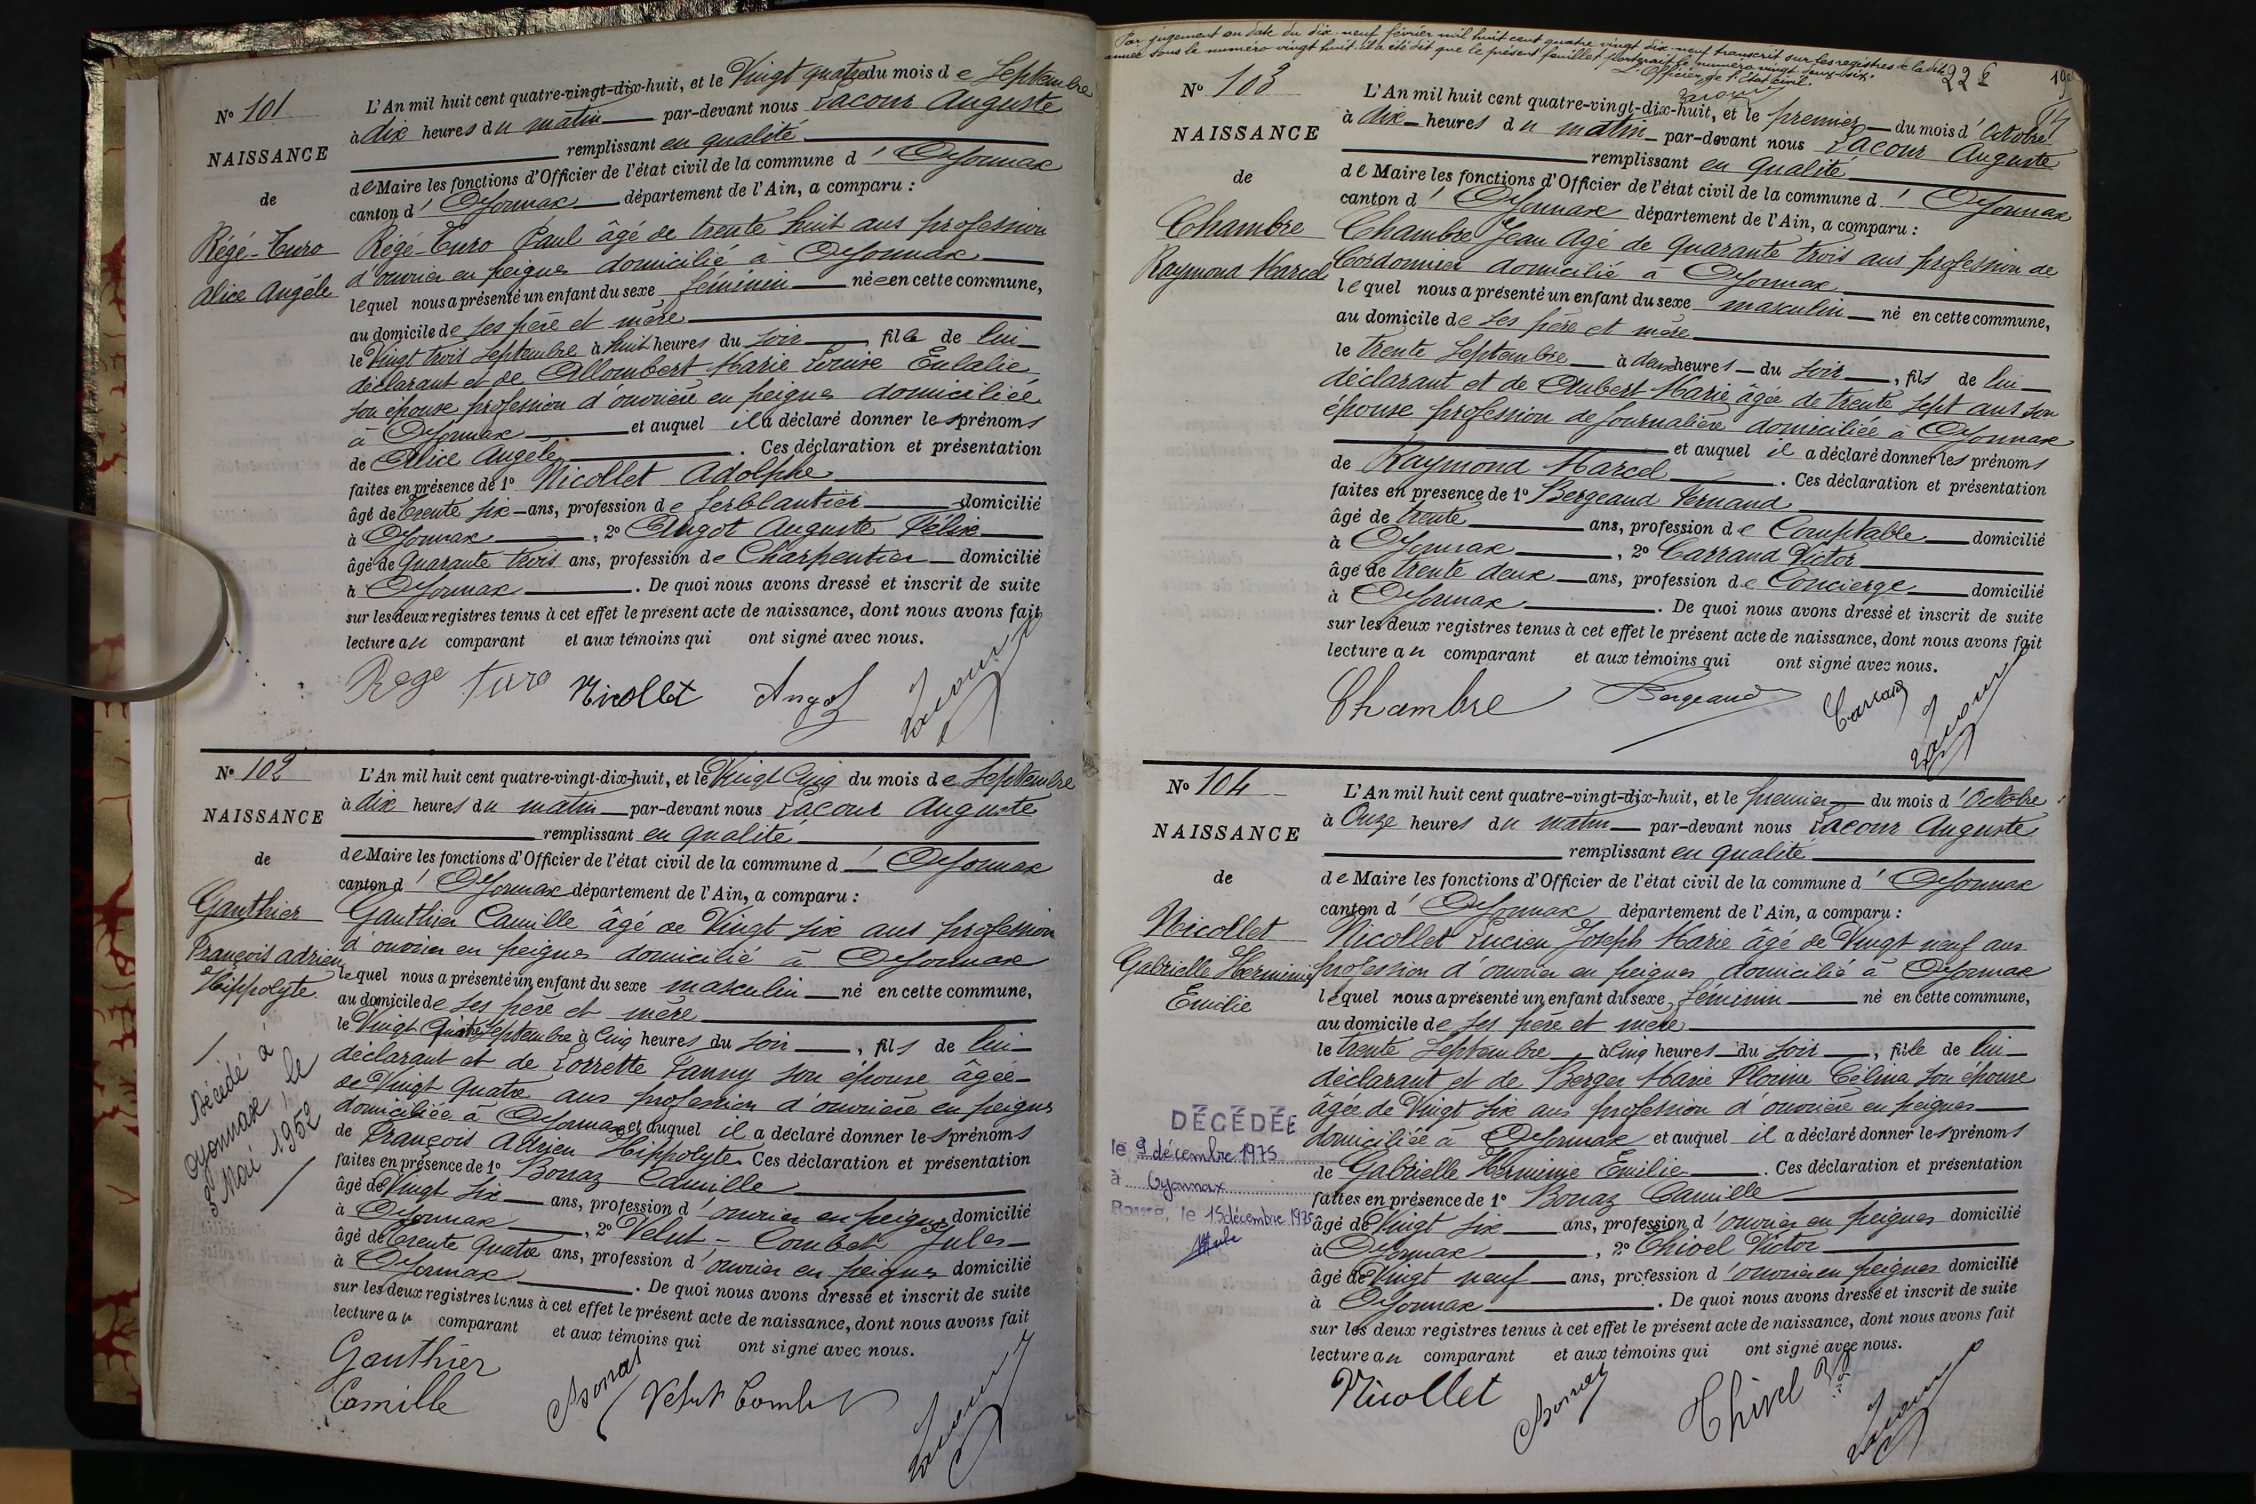 N° 101
NAISSANCE
de
Régé-Turo
Alice Angèle
L'An mil huit cent quatre-vingt-dix-huit, et le Vingt quatre du mois de Septembre
à dix heures du matin par-devant nous Lacour Auguste
remplissant en qualité
de Maire les fonctions d'Officier de l'état civil de la commune d'Oyonnax
canton d'Oyonnax département de l'Ain, a comparu :
Régé-Turo Paul âgé de trente huit ans profession
d'ouvrier en peignes domicilié à Oyonnax
lequel nous a présenté un enfant du sexe féminin née en cette commune,
au domicile de ses père et mère
le Vingt trois Septembre à huit heures du soir, fille de lui
déclarant et de Allombert Marie Louise Eulalie
son épouse profession d'ouvrière en peignes domiciliée
à Oyonnax et auquel il a déclaré donner les prénoms
de Alice Angèle. Ces déclaration et présentation
faites en présence de 1° Nicollet Adolphe
âgé de trente six ans, profession de ferblantier domicilié
à Oyonnax, 2° Angot Auguste Félix
âgé de quarante trois ans, profession de Charpentier domicilié
à Oyonnax. De quoi nous avons dressé et inscrit de suite
sur les deux registres tenus à cet effet le présent acte de naissance, dont nous avons fait
lecture au comparant et aux témoins qui ont signé avec nous.
Rege Turo Nicollet Angot Lacour
N° 102
NAISSANCE
de
Gauthier
François Adrien
Hippolyte
Décédé à
Oyonnax, le
Mai 1952
L'An mil huit cent quatre-vingt-dix-huit, et le Vingt Cinq du mois de Septembre
à dix heures du matin par-devant nous Lacour Auguste
remplissant en qualité
de Maire les fonctions d'Officier de l'état civil de la commune d'Oyonnax
canton d'Oyonnax département de l'Ain, a comparu :
Gauthier Camille âgé de Vingt six ans profession
d'ouvrier en peignes domicilié à Oyonnax
lequel nous a présenté un enfant du sexe masculin né en cette commune,
au domicile de ses père et mère
le Vingt Quatre Septembre à Cinq heures du soir, fils de lui
déclarant et de Lorrette Fanny son épouse âgée
de Vingt quatre ans profession d'ouvrière en peignes
domiciliée à Oyonnax et auquel il a déclaré donner les prénoms
de François Adrien Hippolyte. Ces déclaration et présentation
faites en présence de 1° Borraz Camille
âgé de Vingt six ans, profession d'ouvrier en peignes domicilié
à Oyonnax, 2° Velut-Combet Jules
âgé de trente quatre ans, profession d'ouvrier en peignes domicilié
à Oyonnax. De quoi nous avons dressé et inscrit de suite
sur les deux registres tenus à cet effet le présent acte de naissance, dont nous avons fait
lecture au comparant et aux témoins qui ont signé avec nous.
Gauthier
Camille Borraz Velut Combet Lacour
Par jugement en date du dix-neuf février mil huit cent quatre vingt dix-neuf transcrit sur les registres de ladite
année sous le numéro vingt huit il a été dit que le présent feuillet porterait le numéro vingt deux-six.
L'Officier de l'état civil.
Lacour
22 6
19e
N° 103
NAISSANCE
de
Chambre
Raymond Marcel
L'An mil huit cent quatre-vingt-dix-huit, et le premier du mois d'Octobre
à dix heures du matin par-devant nous Lacour Auguste
remplissant en qualité
de Maire les fonctions d'Officier de l'état civil de la commune d'Oyonnax
canton d'Oyonnax département de l'Ain, a comparu :
Chambre Jean Agé de quarante trois ans profession de
Cordonnier domicilié à Oyonnax
lequel nous a présenté un enfant du sexe masculin né en cette commune,
au domicile de ses père et mère
le trente Septembre à deux heures du soir, fils de lui
déclarant et de Aubert Marie âgée de trente sept ans son
épouse profession de Journalière domiciliée à Oyonnax
et auquel il a déclaré donner les prénoms
de Raymond Marcel. Ces déclaration et présentation
faites en présence de 1° Bergeaud Fernand
âgé de trente ans, profession de Comptable domicilié
à Oyonnax, 2° Carraud Victor
âgé de trente deux ans, profession de Concierge domicilié
à Oyonnax. De quoi nous avons dressé et inscrit de suite
sur les deux registres tenus à cet effet le présent acte de naissance, dont nous avons fait
lecture au comparant et aux témoins qui ont signé avec nous.
Chambre Bergeaud Carraud Lacour
N° 104
NAISSANCE
de
Nicollet
Gabrielle Herminie
Emilie
DÉCÉDÉE
le 9 décembre 1975
à Oyonnax
Bourg, le 15 décembre 1975
L'An mil huit cent quatre-vingt-dix-huit, et le premier du mois d'Octobre
à Onze heures du matin par-devant nous Lacour Auguste
remplissant en qualité
de Maire les fonctions d'Officier de l'état civil de la commune d'Oyonnax
canton d'Oyonnax département de l'Ain, a comparu :
Nicollet Lucien Joseph Marie âgé de Vingt neuf ans
profession d'ouvrier en peignes domicilié à Oyonnax
lequel nous a présenté un enfant du sexe féminin né en cette commune,
au domicile de ses père et mère
le trente Septembre à Cinq heures du soir, fille de lui
déclarant et de Berger Marie Florine Célina son épouse
âgée de Vingt six ans profession d'ouvrière en peignes
domiciliée à Oyonnax et auquel il a déclaré donner les prénoms
de Gabrielle Herminie Emilie. Ces déclaration et présentation
faites en présence de 1° Borraz Camille
âgé de Vingt six ans, profession d'ouvrier en peignes domicilié
à Oyonnax, 2° Thivel Victor
âgé de Vingt neuf ans, profession d'ouvrier en peignes domicilié
à Oyonnax. De quoi nous avons dressé et inscrit de suite
sur les deux registres tenus à cet effet le présent acte de naissance, dont nous avons fait
lecture au comparant et aux témoins qui ont signé avec nous.
Nicollet Borraz Thivel Lacour